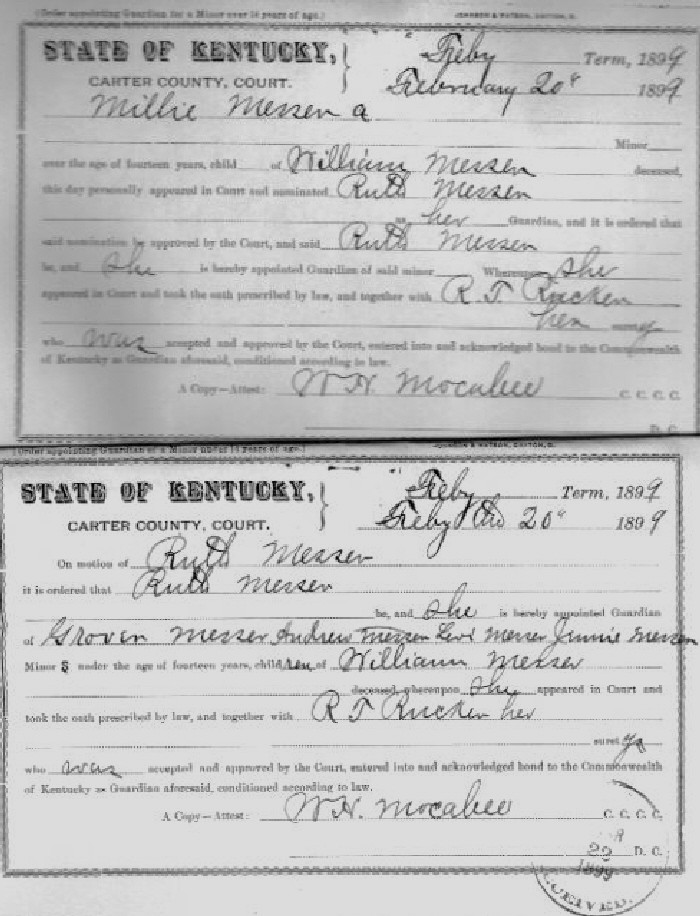 (Order appointing Guardian for a Minor over 14 years of age.) JOHNSON & WATSON, DAYTON, O.
STATE OF KENTUCKY, Feby Term, 1899
CARTER COUNTY, COURT. February 20" 1899
Millie Messer a
Minor
over the age of fourteen years, child of William Messer deceased,
this day personally appeared in Court and nominated Ruth Messer
as her Guardian, and it is ordered that
said nomination be approved by the Court, and said Ruth Messer
be, and she is hereby appointed Guardian of said minor Whereupon she
appeared in Court and took the oath prescribed by law, and together with R T Rucker
her surety
who was accepted and approved by the Court, entered into and acknowledged bond to the Commonwealth
of Kentucky as Guardian aforesaid, conditioned according to law.
A Copy—Attest: W. H. Mocabee C. C. C. C.
D. C.
(Order appointing Guardian of a Minor under 14 years of age.) JOHNSON & WATSON, DAYTON, O.
STATE OF KENTUCKY, Feby Term, 1899
CARTER COUNTY, COURT. Feby the 20" 1899
On motion of Ruth Messer
it is ordered that Ruth Messer
be, and she is hereby appointed Guardian
of Grover Messer Andrew Messer Levi Messer Jennie Messer
Minor s under the age of fourteen years, children of William Messer
deceased, whereupon she appeared in Court and
took the oath prescribed by law, and together with R T Rucker her
surety
who was accepted and approved by the Court, entered into and acknowledged bond to the Commonwealth
of Kentucky as Guardian aforesaid, conditioned according to law.
A Copy—Attest: W. H. Mocabee C. C. C. C.
D. C.
1899
RECEIVED.